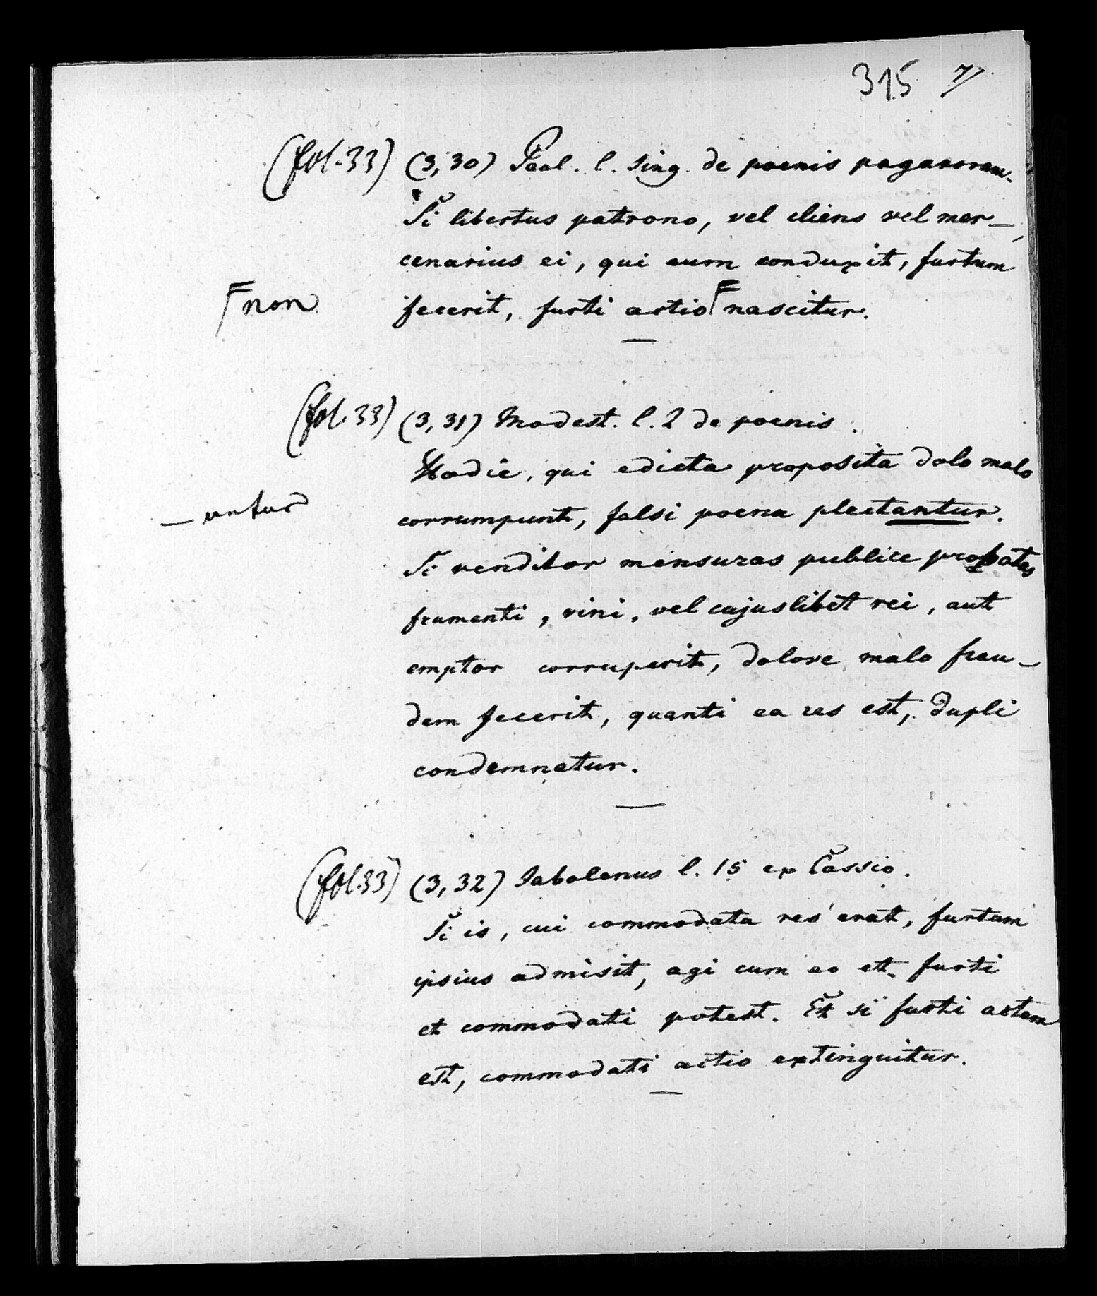 315 7)
(fol. 33) (3,30) Paul. l. sing. de poenis paganorum.
Si libertus patrono, vel cliens vel mer-
cenarius ei, qui eum conduxit, furtum
non fecerit, furti actio nascitur.
(fol. 33) (3,31) Modest. l. 2 de poenis.
Hodie, qui edicta proposita dolo malo
— untur corrumpunt, falsi poena plectantur.
Si venditor mensuras publice probatas
frumenti, vini, vel cujuslibet rei, aut
emptor corruperit, dolove malo frau-
dem fecerit, quanti ea res est, dupli
condemnatur.
(fol. 33) (3,32) Iabolenus l. 15 ex Cassio.
Si is, cui commodata res erat, furtum
ipsius admisit, agi cum eo et furti
et commodati potest. Et si furti actum
est, commodati actio extinguitur.